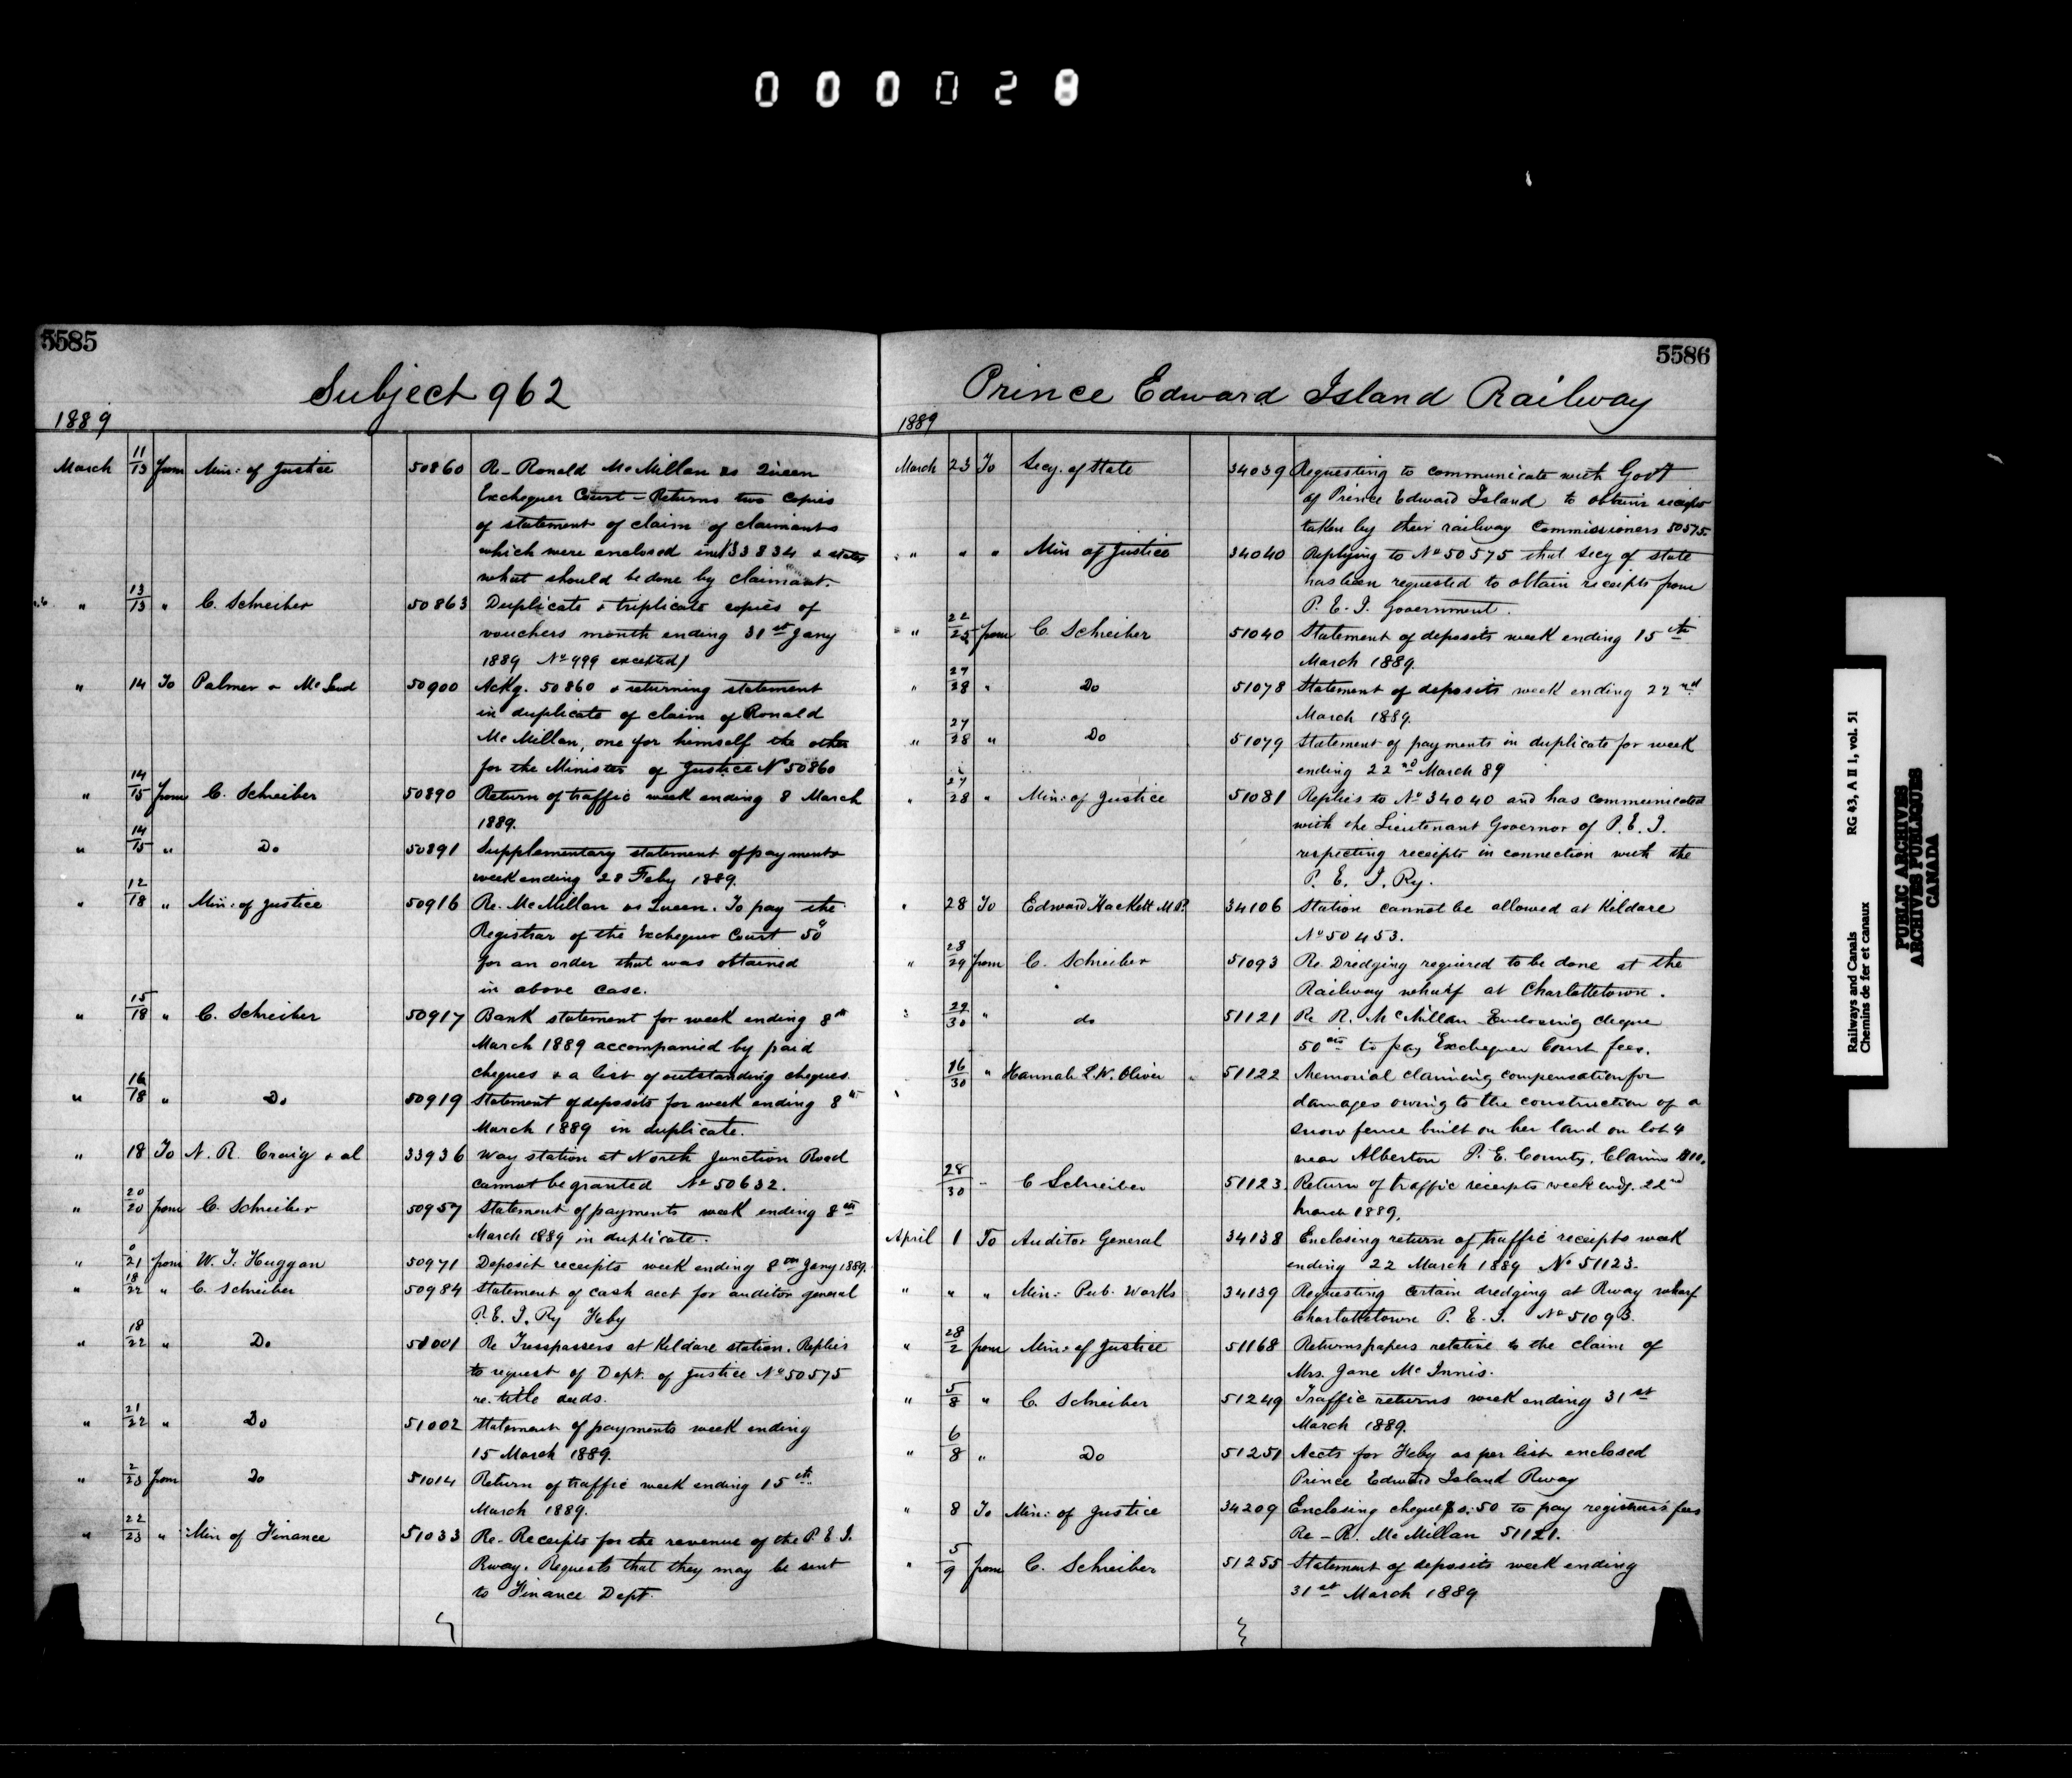 000028
5585
Subject 962
1889
March 11/13 from Min: of Justice 50860 Re- Ronald McMillan vs Queen
Exchequer Court - Returns two copies
of statement of claim of claimants
which were enclosed in 33834 & states
what should be done by claimant.
" 13/13 " C. Schreiber 50863 Duplicate & triplicate copies of
vouchers month ending 31st Jany
1889 No 999 excepted)
" 14 To Palmer & McLeod 50900 Ackg. 50860 & returning statement
in duplicate of claim of Ronald
McMillan, one for himself the other
for the Minister of Justice No 50860
" 14/15 from C. Schreiber 50890 Return of traffic week ending 8 March
1889.
" 14/15 " Do 50891 Supplementary statement of payments
week ending 28 Feby 1889.
" 12/18 " Min: of Justice 50916 Re. McMillan vs Queen. To pay the
Registrar of the Exchequer Court 50
for an order that was obtained
in above case.
" 15/18 " C. Schreiber 50917 Bank statement for week ending 8th
March 1889 accompanied by paid
cheques & a list of outstanding cheques.
" 16/18 " Do 50919 Statement of deposits for week ending 8th
March 1889 in duplicate.
" 18 To N. R. Craig & al 33936 Way station at North Junction Road
cannot be granted No 50632.
" 20/20 from C. Schreiber 50957 Statement of payments week ending 8th
March 1889 in duplicate.
" /21 from W. T. Huggan 50971 Deposit receipts week ending 8th Jany 1889.
" 18/22 " C. Schreiber 50984 Statement of cash acct for auditor general
P.E.I. Ry Feby
" 18/22 " Do 51001 Re Tresspassers at Kildare station. Replies
to request of Dept. of Justice No 50575
re. title deeds.
" 21/22 " Do 51002 Statement of payments week ending
15 March 1889.
" 2/23 from Do 51014 Return of traffic week ending 15th
March 1889.
" 22/23 " Min of Finance 51033 Re- Receipts for the revenue of the P.E.I.
Rway. Requests that they may be sent
to Finance Dept.
5586
Prince Edward Island Railway
1889
March 23 To Secy. of State 34039 Requesting to communicate with Govt
of Prince Edward Island to obtain receipts
taken by their railway Commissioners 50575.
" " " Min of Justice 34040 Replying to No 50575 that Secy of state
has been requested to obtain receipts from
P. E. I. government.
" 22/25 from C. Schreiber 51040 Statement of deposits week ending 15th
March 1889.
" 27/28 " Do 51078 Statement of deposits week ending 22nd
March 1889.
" 27/28 " Do 51079 Statement of payments in duplicate for week
ending 22nd March 89
" 27/28 " Min: of Justice 51081 Replies to No 34040 and has communicated
with the Lieutenant Governor of P.E.I.
respecting receipts in connection with the
P. E. I. Ry.
" 28 To Edward Hackett M.P. 34106 Station cannot be allowed at Kildare
No 50453.
" 28/29 from C. Schreiber 51093 Re. Dredging required to be done at the
Railway wharf at Charlottetown.
" 29/30 " do 51121 Re R. McMillan Enclosing cheque
50cts to pay Exchequer Court fees.
16/30 " Hannah L.W. Oliver 51122 Memorial claiming compensation for
damages owing to the construction of a
snow fence built on her land on lot 4
near Alberton P. E. County, Claims $110.
28/30 " C Schreiber 51123. Return of traffic receipts week endg. 22nd
March 1889.
April 1 To Auditor General 34138 Enclosing return of traffic receipts week
ending 22 March 1889 No 51123.
" " " Min: Pub. Works 34139 Requesting certain dredging at Rway wharf
Charlottetown P. E. I. No 51093.
" 28/2 from Min: of Justice 51168 Returns papers relative to the claim of
Mrs. Jane McInnis.
" 5/8 " C. Schreiber 51249 Traffic returns week ending 31st
March 1889.
" 6/8 " Do 51251 Accts for Feby as per list enclosed
Prince Edward Island Rway
" 8 To Min: of Justice 34209 Enclosing cheque $0.50 to pay registrars fees
Re - R. McMillan 51121.
" 5/9 from C. Schreiber 51255 Statement of deposits week ending
31st March 1889
Railways and Canals RG 43, A II 1, vol. 51
Chemins de fer et canaux
PUBLIC ARCHIVES
ARCHIVES PUBLIQUES
CANADA